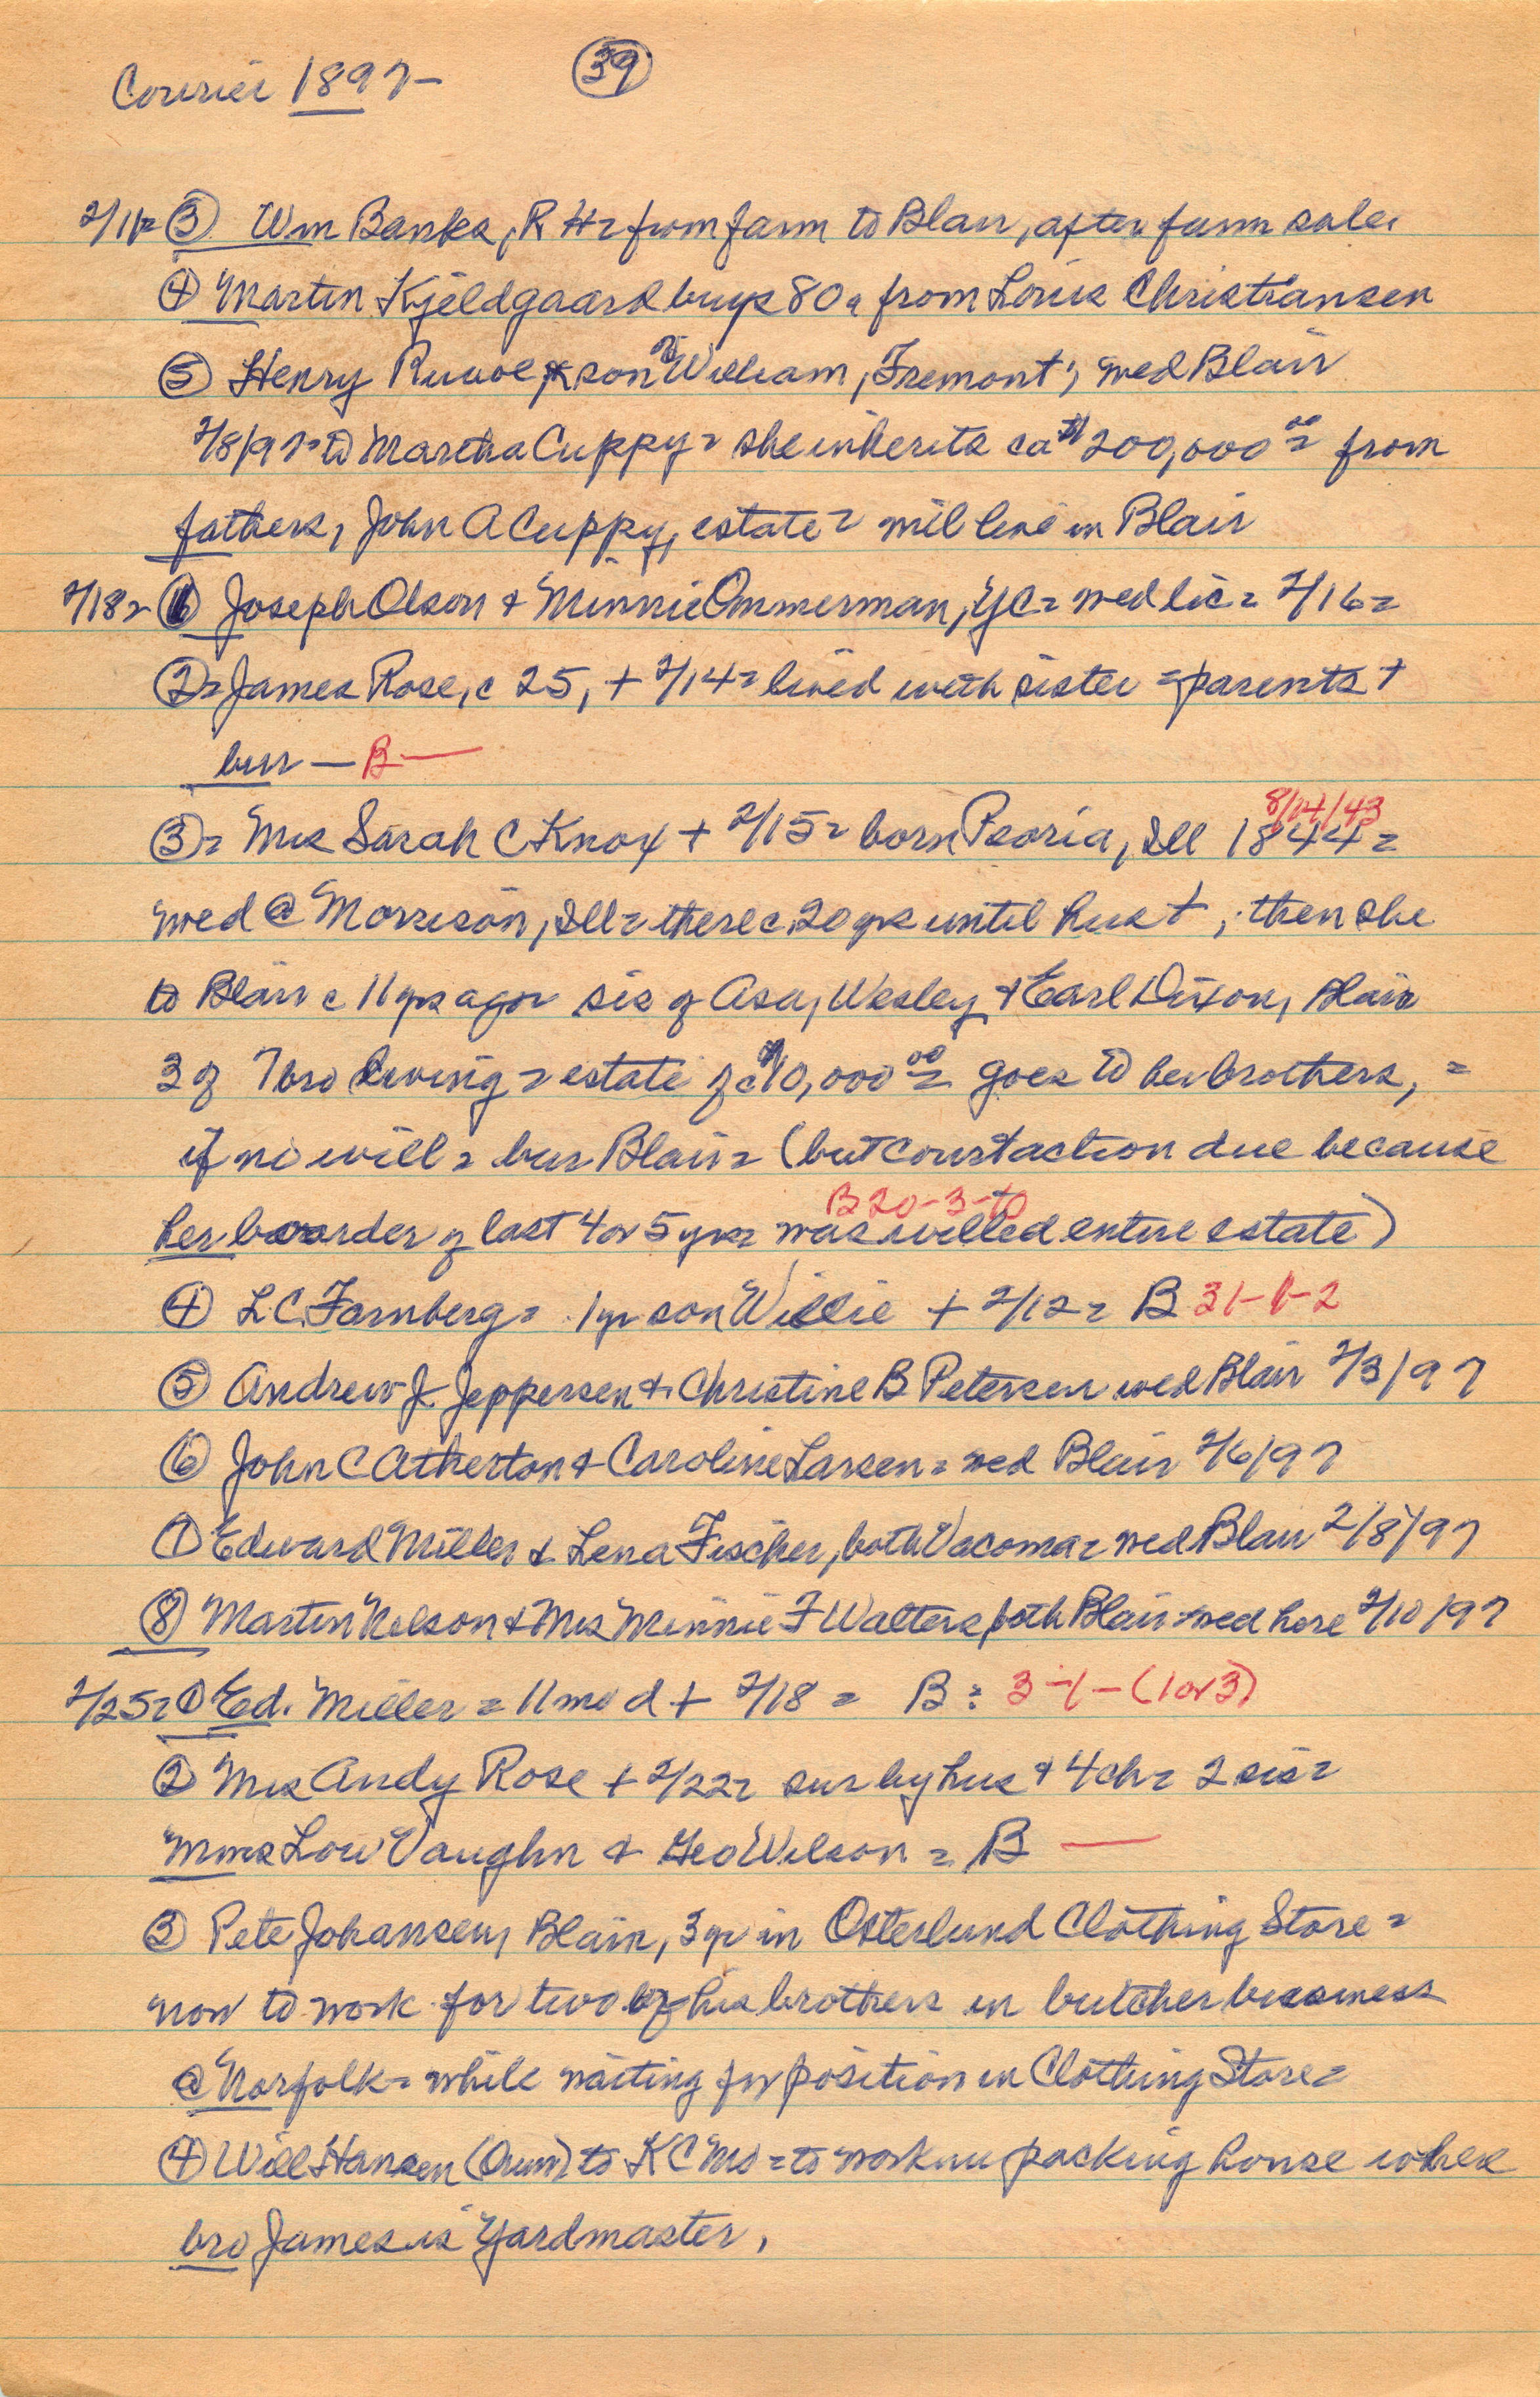 Courier 1897- (39)
2/11= (3) Wm Banks, R H= from farm to Blair, after farm sale=
(4) Martin Kjeldgaard buys 80a from Louis Christiansen
(5) Henry Ruwe, son of William, Fremont; wed Blair
2/8/97= to Martha Cuppy= she inherits ca $200,000.00= from
fathers, John A Cuppy, estate= will live in Blair
2/18= (1) Joseph Olson & Minnie Ommerman, YC= wed lic= 2/16=
(2)= James Rose, c 25, + 2/14= lived with sister = parents +
bur — B —
(3)= Mrs Sarah C Knox + 2/15= born Peoria, Ill 1844= 8/14/43
wed @ Morrison, Ill= there c 20 yrs until hus +; then she
to Blair c 11 yrs ago= sis of Asa, Wesley & Earl Dixon, Blair
3 of 7 bro living= estate of c $10,000.00= goes to her brothers, =
if no will= bur Blair= (but court action due because
B 20-3-10
her boarder of last 4 or 5 yrs= was willed entire estate)
(4) L.C. Farnberg= 1 yr son Willie + 2/12= B 31-1-2
(5) Andrew J Jeppersen & Christine B Petersen wed Blair 2/3/97
(6) John C Atherton & Caroline Larsen= wed Blair 2/6/97
(7) Edward Miller & Lena Fischer, both Vacoma= wed Blair 2/8/97
(8) Martin Nelson & Mrs Minnie F Walters, both Blair= wed here 2/10/97
2/25= (1) Ed. Miller= 11 mo d + 2/18= B: 3-1-(1 or 3)
(2) Mrs Andy Rose + 2/22= sur by hus & 4 ch= 2 sis=
Mmes Low Vaughn & Geo Wilson = B —
(3) Pete Johansen, Blair, 3 yr in Osterlund Clothing Store=
now to work for two of his brothers in butcher business
@ Norfolk= while waiting for position in Clothing Store=
(4) Will Hansen (Orum) to KC Mo= to work in packing house where
bro James is Yardmaster,